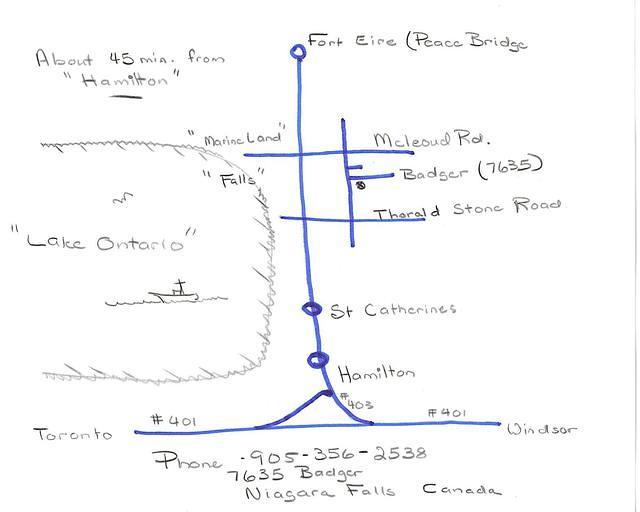 About 45 min. from
"Hamilton"
Fort Eire (Peace Bridge
"MarineLand"
Mcleoud Rd.
"Falls"
Badger (7635)
Thorald Stone Road
"Lake Ontario"
St Catherines
Hamilton
#403
#401
#401
Toronto
Windsor
Phone - 905-356-2538
7635 Badger
Niagara Falls Canada